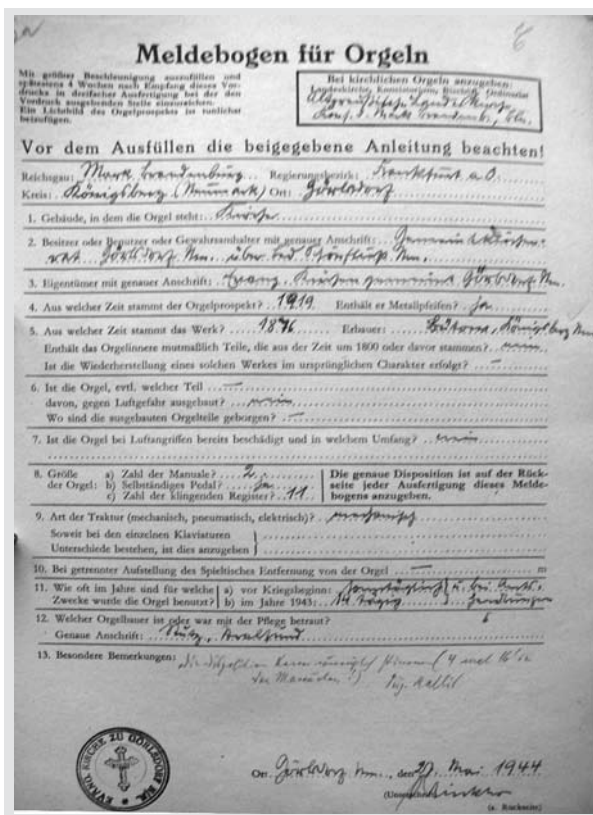 Meldebogen für Orgeln
Mit größter Beschleunigung auszufüllen und
spätestens 4 Wochen nach Empfang dieses Vor-
drucks in dreifacher Ausfertigung bei der den
Vordruck ausgebenden Stelle einzureichen.
Ein Lichtbild des Orgelprospekts ist tunlichst
beizufügen.
Bei kirchlichen Orgeln anzugeben:
Landeskirche, Konsistorium, Bischöfl. Ordinariat
Vor dem Ausfüllen die beigegebene Anleitung beachten!
Reichsgau: Mark Brandenburg Regierungsbezirk: Frankfurt a. O.
Kreis: Königsberg (Neumark) Ort: Görlsdorf
1. Gebäude, in dem die Orgel steht: Kirche
2. Besitzer oder Benutzer oder Gewahrsamhalter mit genauer Anschrift: Gemeindekirchen-
rat Görlsdorf Nm. über Bad Schönfließ Nm.
3. Eigentümer mit genauer Anschrift: Evang. Kirchengemeinde Görlsdorf Nm.
4. Aus welcher Zeit stammt der Orgelprospekt? 1919 Enthält er Metallpfeifen? ja
5. Aus welcher Zeit stammt das Werk? 1876 Erbauer: Königsberg Nm
Enthält das Orgelinnere mutmaßlich Teile, die aus der Zeit um 1800 oder davor stammen? nein
Ist die Wiederherstellung eines solchen Werkes im ursprünglichen Charakter erfolgt? —
6. Ist die Orgel, evtl. welcher Teil —
davon, gegen Luftgefahr ausgebaut? nein
Wo sind die ausgebauten Orgelteile geborgen? —
7. Ist die Orgel bei Luftangriffen bereits beschädigt und in welchem Umfang? nein
8. Größe a) Zahl der Manuale? 2 Die genaue Disposition ist auf der Rück-
der Orgel: b) Selbständiges Pedal? ja seite jeder Ausfertigung dieses Melde-
c) Zahl der klingenden Register? 11 bogens anzugeben.
9. Art der Traktur (mechanisch, pneumatisch, elektrisch)? mechanisch
Soweit bei den einzelnen Klaviaturen
Unterschiede bestehen, ist dies anzugeben
10. Bei getrennter Aufstellung des Spieltisches Entfernung von der Orgel — m
11. Wie oft im Jahre und für welche a) vor Kriegsbeginn: sonntäglich u. bei Amts-
Zwecke wurde die Orgel benutzt? b) im Jahre 1943: 14 tägig handlungen
12. Welcher Orgelbauer ist oder war mit der Pflege betraut?
Genaue Anschrift: Stralsund
13. Besondere Bemerkungen: Die Disposition kann unmöglich stimmen (4 mal 16' in
den Manualen!)
EVANG. KIRCHE ZU GÖRLSDORF N/M.
Ort Görlsdorf Nm., den 27. Mai 1944
(s. Rückseite)